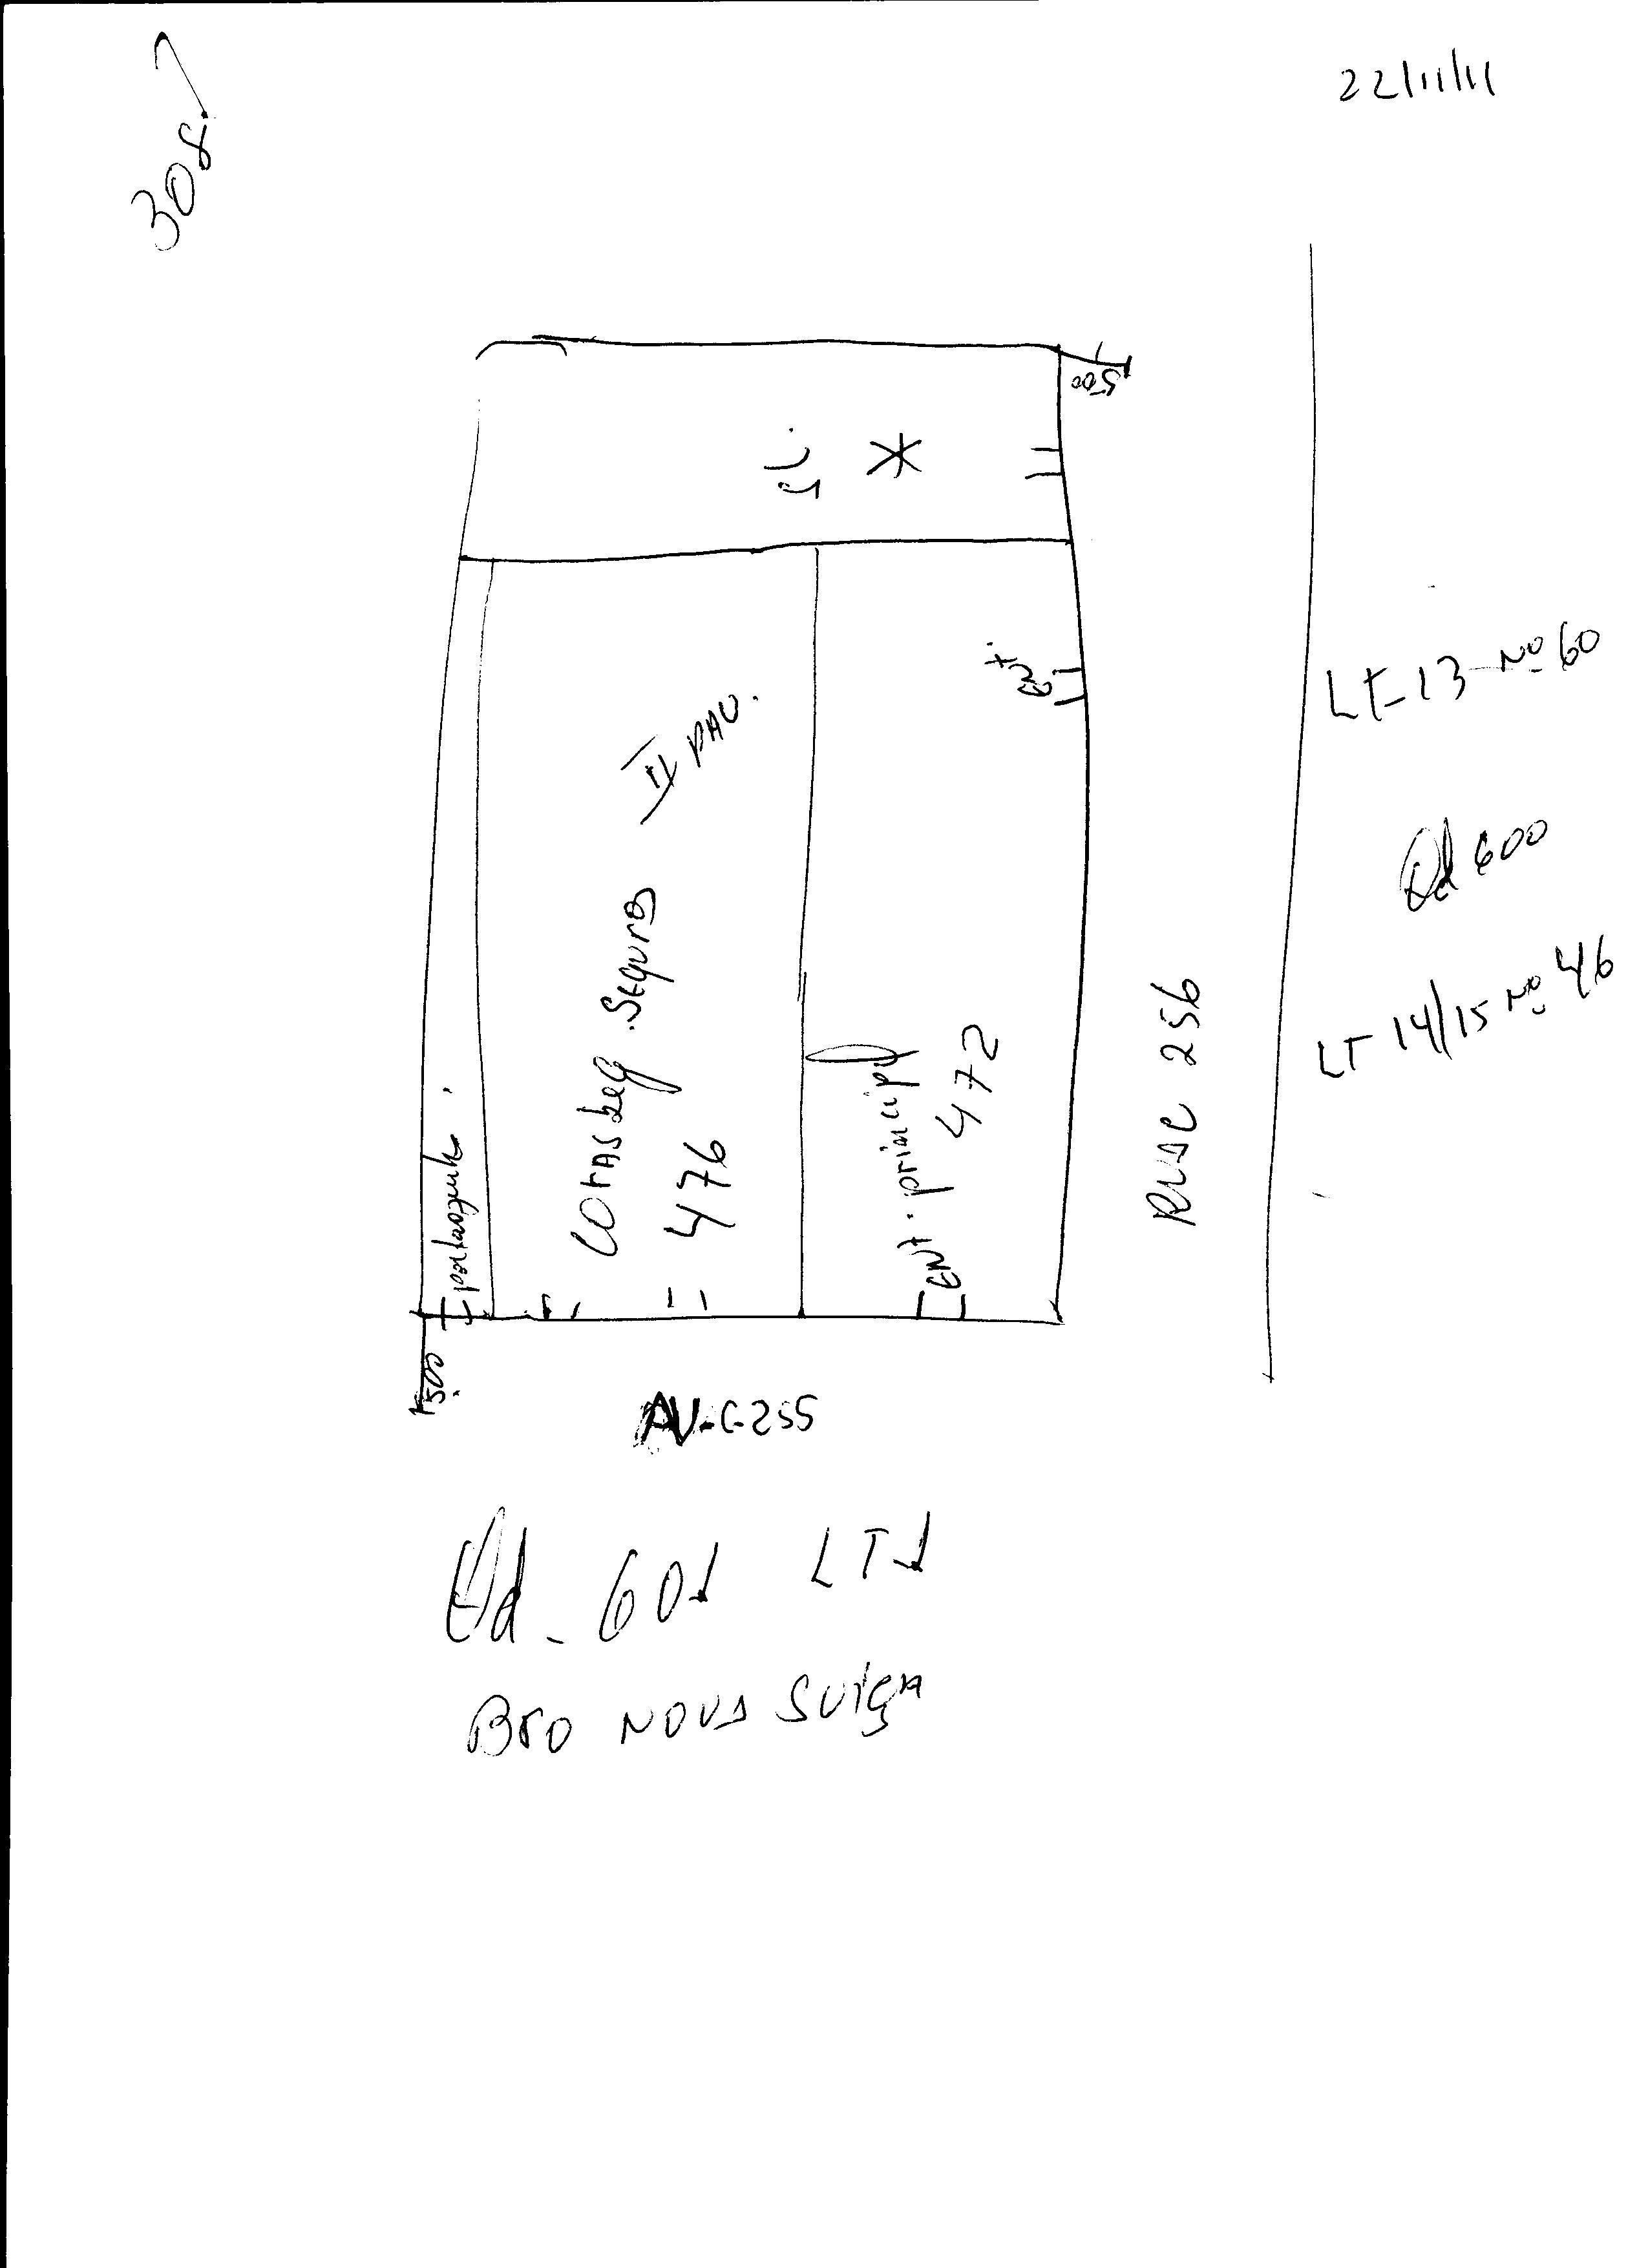 22/11/11
308
500
SL.
Ent.
II PAV.
LT-13 Nº 60
Qd 600
LT 14/15 Nº 46
Seguros
476
Ent. principal
472
RUA C 256
500
AV-C-255
Qd - 601 LT 1
BRO NOVA SUIÇA